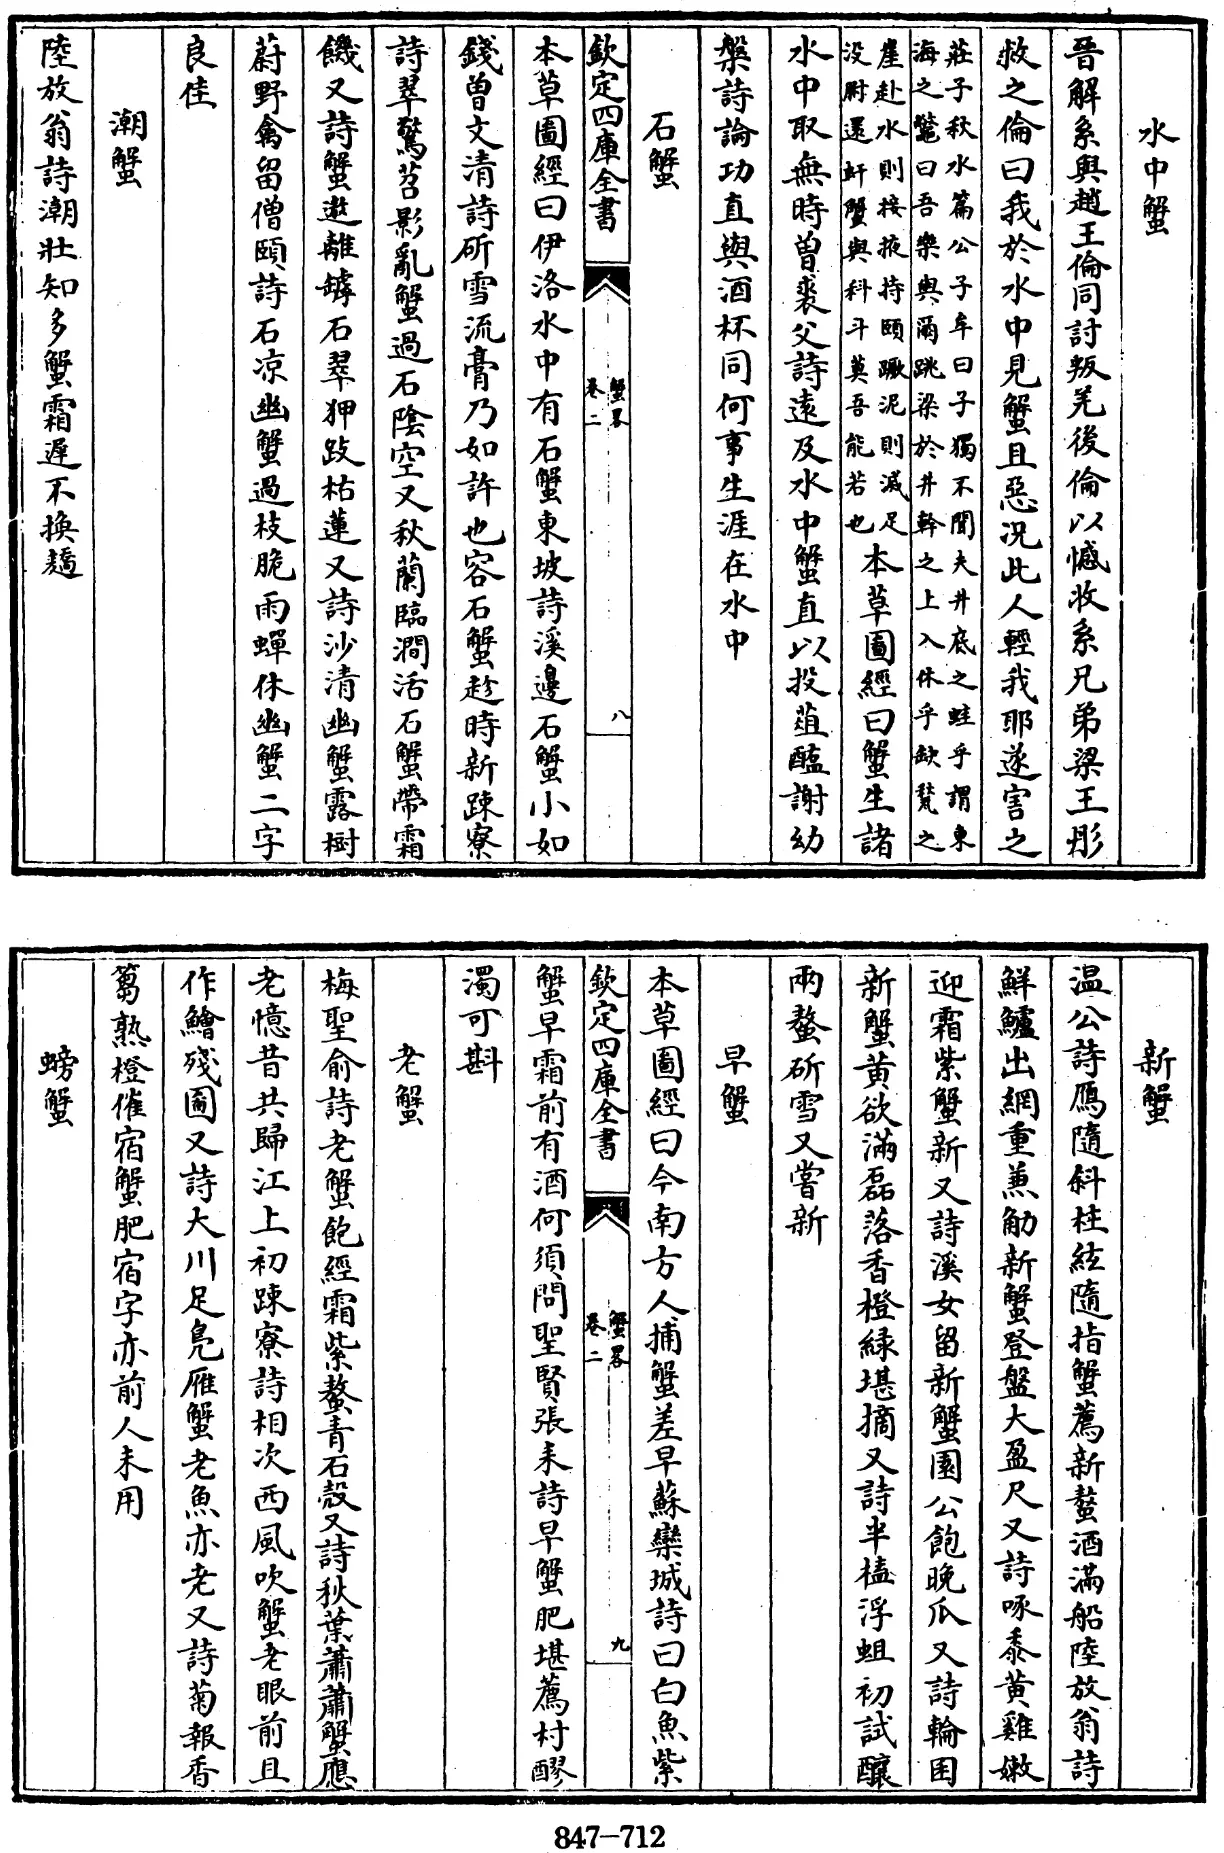 水中蟹
晉解系與趙王倫同討叛羌後倫以憾收系兄弟梁王彤
救之倫曰我於水中見蟹且惡况此人輕我耶遂害之
莊子秋水篇公子牟曰子獨不聞夫井底之蛙乎謂東
海之鼈曰吾樂與爾跳梁於井幹之上入休乎缺甃之
崖赴水則接掖持頤蹶泥則滅足
没跗還虷蟹與科斗莫吾能若也
本草圖經曰蟹生諸
水中取無時曾裘父詩遠及水中蟹直以投葅醢謝幼
槃詩論功直與酒杯同何事生涯在水中
石蟹
欽定四庫全書
蟹畧
卷二
八
本草圖經曰伊洛水中有石蟹東坡詩溪邊石蟹小如
錢曾文清詩斫雪流膏乃如許也容石蟹趁時新踈寮
詩翠驚苕影亂蟹過石陰空又秋蘭臨澗活石蟹帶霜
饑又詩蟹遨離罅石翠狎跂枯蓮又詩沙清幽蟹露樹
蔚野禽留僧頤詩石凉幽蟹過枝脆雨蟬休幽蟹二字
良佳
潮蟹
陸放翁詩潮壯知多蟹霜遲不換鶿
新蟹
温公詩鴈隨斜柱絃隨指蟹薦新螯酒滿船陸放翁詩
鮮鱸出網重兼觔新蟹登盤大盈尺又詩啄黍黄雞嫩
迎霜紫蟹新又詩溪女留新蟹園公飽晚瓜又詩輪囷
新蟹黄欲滿磊落香橙緑堪摘又詩半榼浮蛆初試釀
兩螯斫雪又嘗新
早蟹
本草圖經曰今南方人捕蟹差早蘇欒城詩曰白魚紫
欽定四庫全書
蟹畧
卷二
九
蟹早霜前有酒何須問聖賢張耒詩早蟹肥堪薦村醪
濁可斟
老蟹
梅聖俞詩老蟹飽經霜紫螯青石殼又詩秋葉蕭蕭蟹應
老憶昔共歸江上初踈寮詩相次西風吹蟹老眼前且
作鱠殘圖又詩大川足鳬雁蟹老魚亦老又詩菊報香
篘熟橙催宿蟹肥宿字亦前人未用
螃蟹
847—712